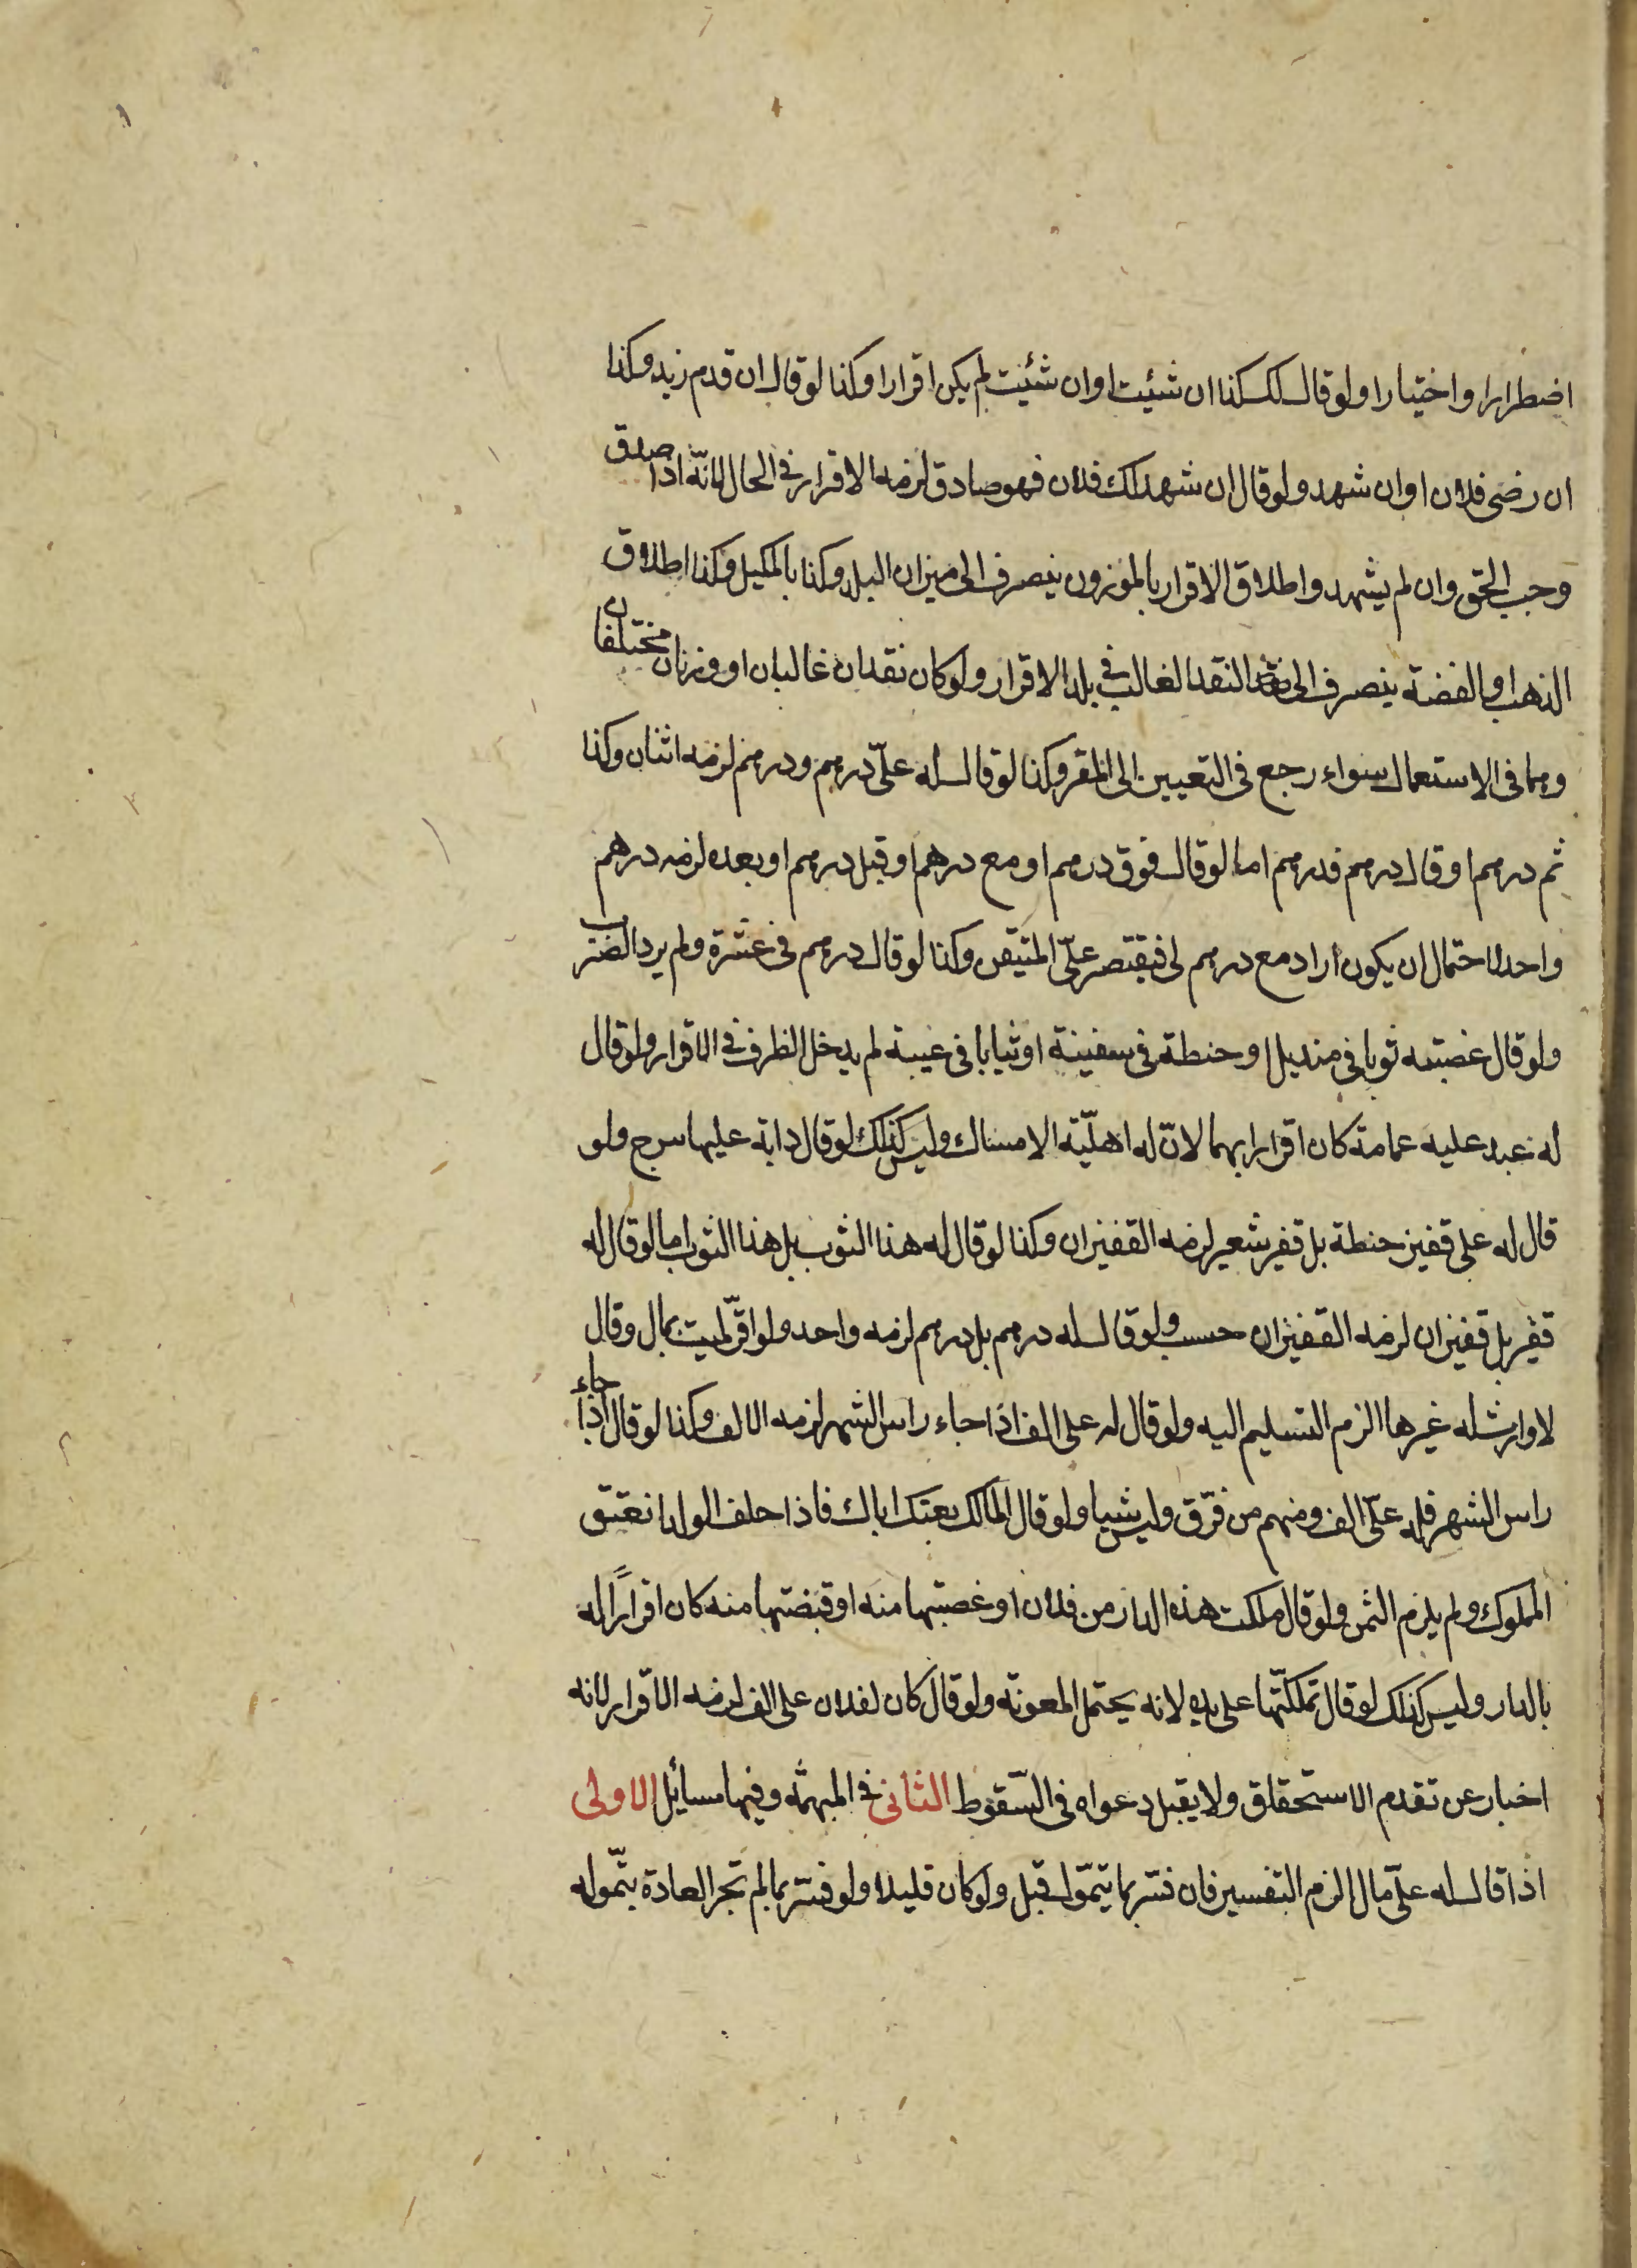 اضطرارا واختيارا ولو قال لك كذا ان شئت او ان شئيت لم يكن اقرارا وكذا لو قال ان قدم زيد وكذا
ان رضى فلان او ان شهد ولو قال ان شهد لك فلان فهو صادق لزمه الاقرار في الحال لانّه اذا صدق
وجب الحق وان لم يشهد واطلاق الاقرار بالموزون ينصرف الى ميزان البلد وكذا بالمكيل وكذا اطلاق
الذهب او الفضة ينصرف الى النقد الغالب في بلد الاقرار ولو كان نقدان غالبان او وزنان مختلفان
وهما فى الاستعمال سواء رجع فى التعيين الى المقر وكذا لو قال له علىّ درهم ودرهم لزمه اثنان وكذا
ثم درهم او قال درهم فدرهم اما لو قال فوق درهم او مع درهم او قبل درهم او بعده لزمه درهم
واحد لاحتمال ان يكون اراد مع درهم لى فيقتصر علىّ المتيقن وكذا لو قال درهم فى عشرة ولم يرد الضرب
ولو قال غصبته ثوبا في منديل او حنطة فى سفينة او ثيابا فى عيبة لم يدخل الظرف في الاقرار ولو قال
له عبد عليه عمامة كان اقرارا بهما لانّ له اهليّة الامساك وليس كذلك لو قال دابة عليها سرج ولو
قال له على قفيز حنطة بل قفيز شعير لزمه القفيزان وكذا لو قال له هذا الثوب بل هذا الثوب اما لو قال له
قفيز بل قفيزان لزمه القفيزان حسب ولو قال له درهم بل درهم لزمه واحد ولو اقرّ لميت بمال وقال
لا وارث له غير هذا الزم التسليم اليه ولو قال له على الف اذا جاء راس الشهر لزمه الالف وكذا لو قال اذا جاء
راس الشهر فله علىّ الف ومنهم من فرّق وليس شيا ولو قال المالك بعتك اباك فاذا حلف الولد انعتق
المملوك ولم يلزم الثمن ولو قال ملكت هذه الدار من فلان او غصبتها منه او قبضتها منه كان اقرارًا له
بالدار وليس كذلك لو قال تملكتّها على يده لانه يحتمل المعونة ولو قال كان لفلان على الف لزمه الاقرار لانه
اخبار عن تقدم الاستحقاق ولا يقبل دعواه فى السّقوط الثانى في المبهمة وفيها مسائل الاولى
اذا قال له علىّ مال الزم التفسير فان فسّر بما يتموّل قبل ولو كان قليلا ولو فسّر بما لم تجر العادة بتّموله